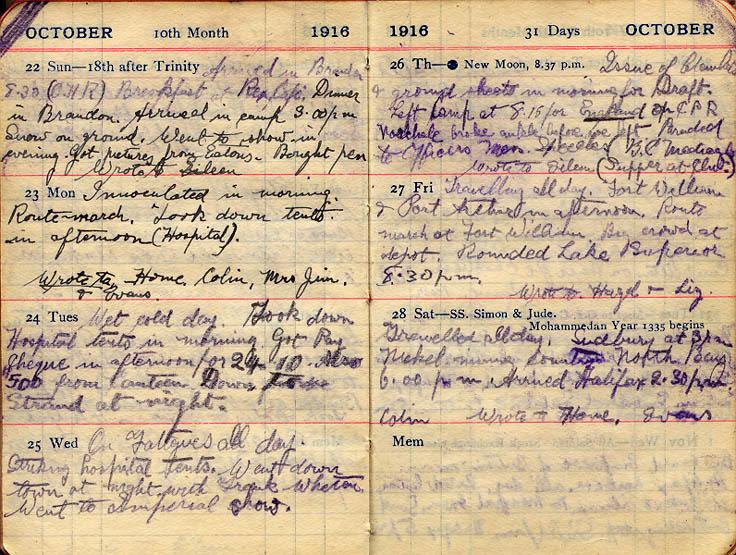 OCTOBER 10th Month 1916
22 Sun—18th after Trinity Arrived in Brandon
8.30 Breakfast at Rex Cafe Dinner
in Brandon. Arrived in camp 3.00 pm
Snow on ground. Went to show in
evening. Got pictures from Eatons. Bought pen
Wrote to Eileen
23 Mon Innoculated in morning.
Route-march. Took down tents.
in afternoon (Hospital).
Wrote to Home, Colin, Mrs Jim,
& Evans.
24 Tues Wet cold day Took down
Hospital tents in morning. Got Pay
Cheque in afternoon for 24.10. Also
500 from Canteen Down to
Strand at night.
25 Wed On Fatigues all day.
Striking hospital tents. Went down
town at night with Frank
Went to Imperial show.
1916 31 Days OCTOBER
26 Th—● New Moon, 8.37 p.m. Issue of Blankets
& ground sheets in morning for Draft.
Left Camp at 8.15 for England on C.P.R
broke ankle before we left
to Officers Mess
Wrote to Eileen (Supper at Club.)
27 Fri Travelling all day. Fort William
& Port Arthur in afternoon. Route
march at Fort William. Big crowd at
depot. Rounded Lake Superior
8.30 pm.
Wrote to Hazel & Liz.
28 Sat—SS. Simon & Jude.
Mohammedan Year 1335 begins
Travelled all day, Sudbury at 3 pm
Nickel mine North Bay
6.00 pm. Arrived Halifax 2.30 pm.
Colin Wrote to Home. Evans
Mem